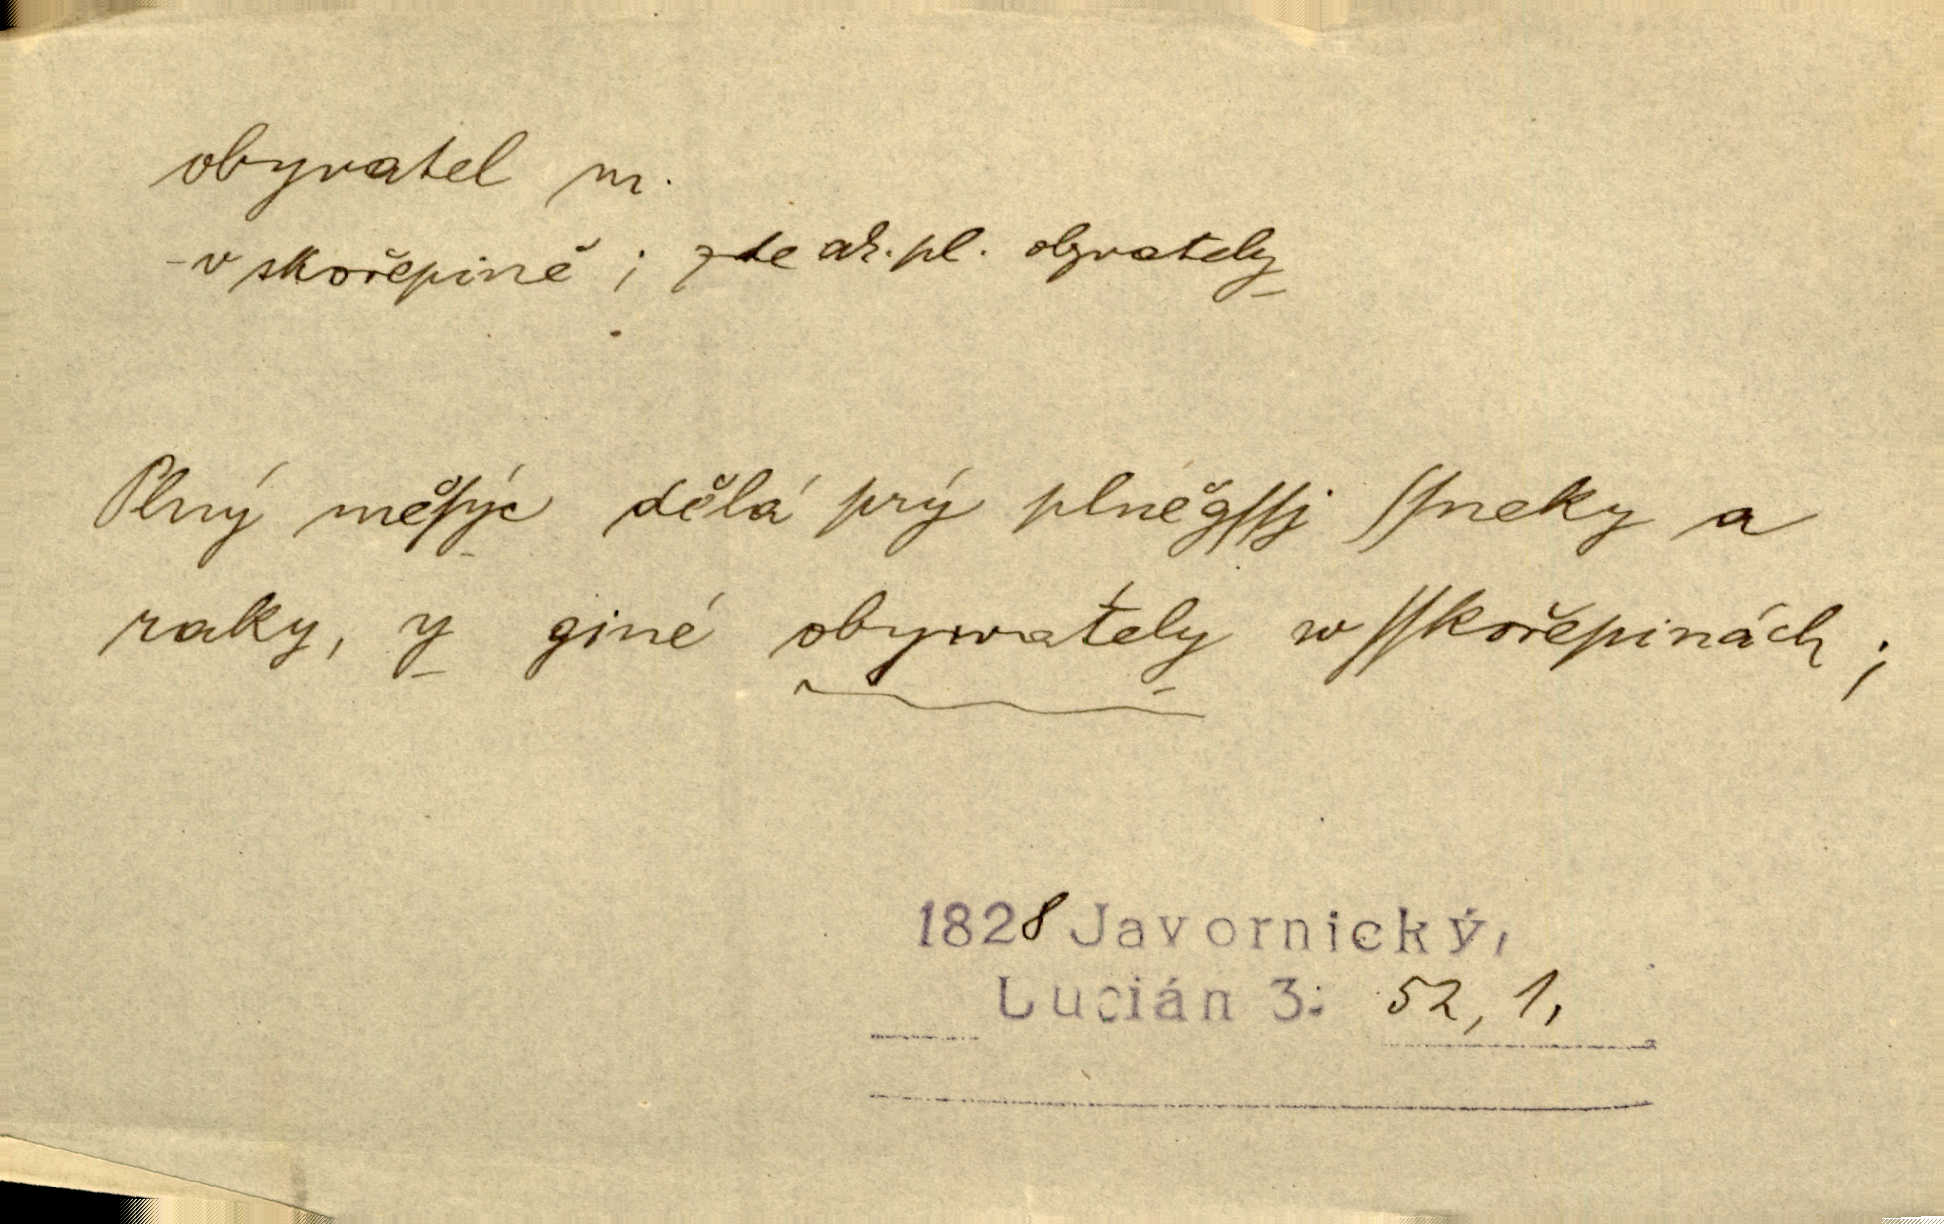 obyvatel m.
- v skořepině ; zde ak. pl. obyvately
Plný měſýc dělá prý plněgſſj ſſneky a
raky, y giné obywately w ſſkořepinách ;
1828 Javornický,
Lucián 3: 52, 1,